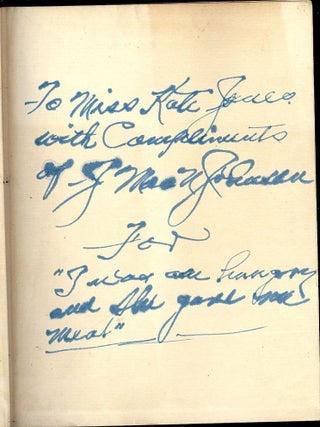 To Miss Kate Jones.
with Compliments
of J Johnson
For
"I was an hungry
and She gave me
meat"